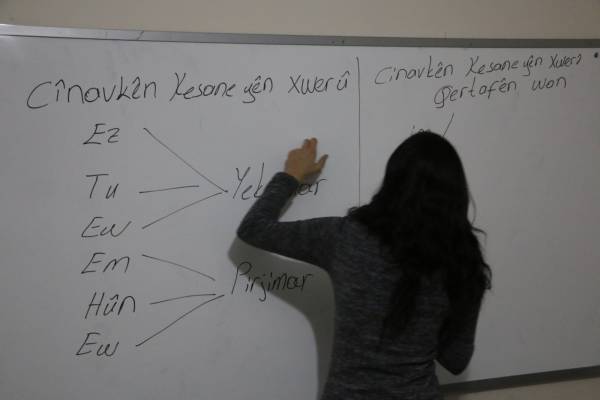 Cînavkên Kesane yên Xwerû
Ez
Tu
Ew
Em
Hûn
Ew
Pirjimar
Cinavkên Kesane yên Xwerû
Qertafên wan